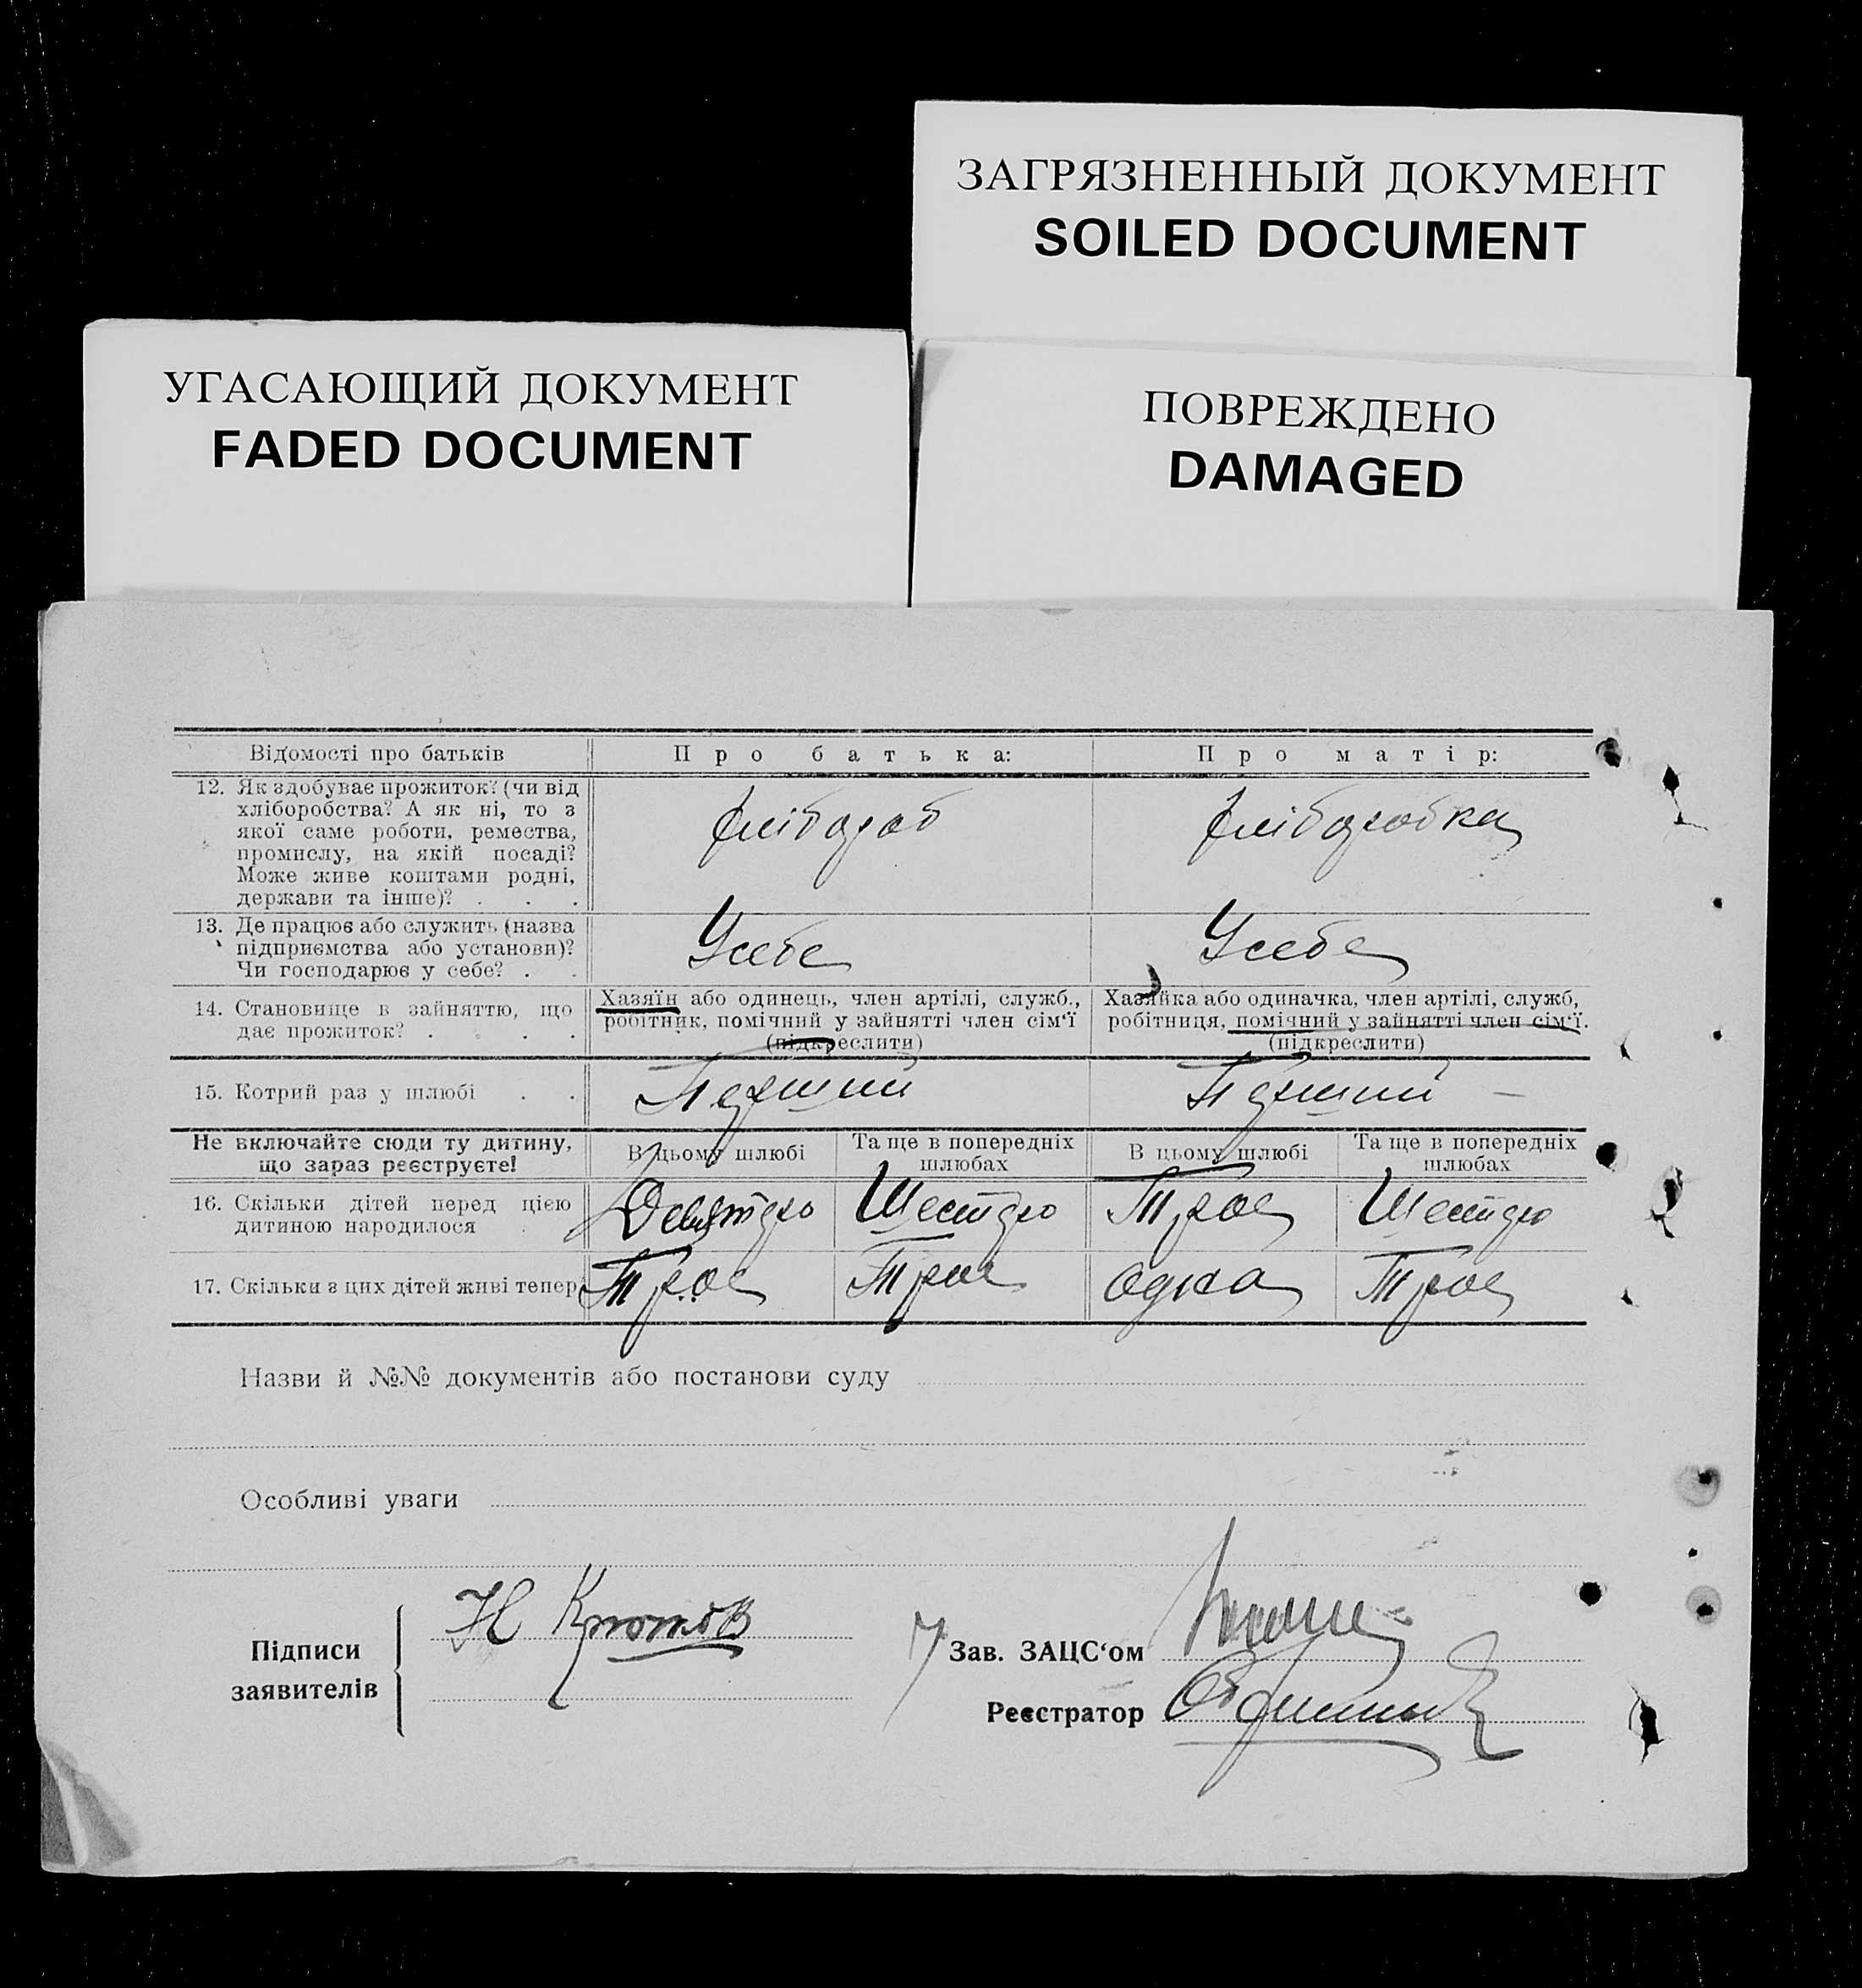 ЗАГРЯЗНЕННЫЙ ДОКУМЕНТ
SOILED DOCUMENT
УГАСАЮЩИЙ ДОКУМЕНТ
FADED DOCUMENT
ПОВРЕЖДЕНО
DAMAGED
Відомості про батьків
Про батька:
Про матір:
12. Як здобуває прожиток? (чи від
хліборобства? А як ні, то з
якої саме роботи, ремества,
промислу, на якій посаді?
Може живе коштами родні,
держави та інше)? . . .
хлібороб
хліборобка
13. Де працює або служить (назва
підприємства або установи)?
Чи господарює у себе? . .
Усебе
Усебе
14. Становище в зайняттю, що
дає прожиток? . . . .
Хазяїн або одинець, член артілі, служб.,
робітник, помічний у зайнятті член сім'ї
(підкреслити)
Хазяйка або одиначка, член артілі, служб,
робітниця, помічний у зайнятті член сім'ї.
(підкреслити)
15. Котрий раз у шлюбі . .
Перший
Перший –
Не включайте сюди ту дитину,
що зараз реєструєте!
В цьому шлюбі
Та ще в попередніх
шлюбах
В цьому шлюбі
Та ще в попередніх
шлюбах
16. Скільки дітей перед цією
дитиною народилося .
Девятеро
Шестеро
Трое
Шестеро
17. Скільки з цих дітей живі тепер
Трое
Трое
Одна
Трое
Назви й №№ документів або постанови суду
Особливі уваги
Підписи
заявителів
Н Кротов
Зав. ЗАЦС'ом
Реєстратор